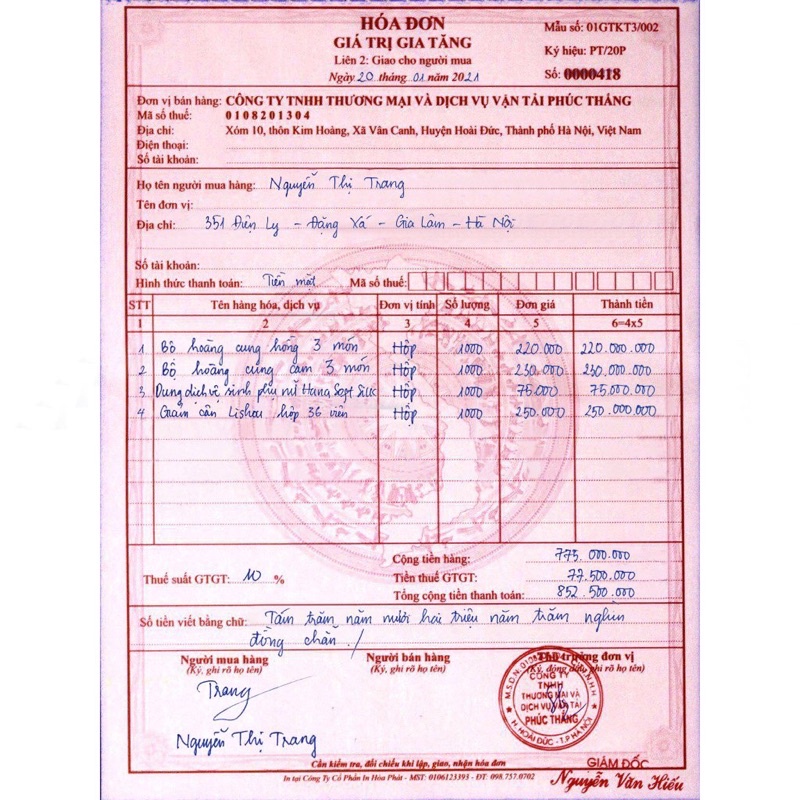 HÓA ĐƠN
GIÁ TRỊ GIA TĂNG
Liên 2: Giao cho người mua
Ngày 20 tháng 01 năm 2021
Mẫu số: 01GTKT3/002
Ký hiệu: PT/20P
Số: 0000418
Đơn vị bán hàng: CÔNG TY TNHH THƯƠNG MẠI VÀ DỊCH VỤ VẬN TẢI PHÚC THẮNG
Mã số thuế: 0108201304
Địa chỉ: Xóm 10, thôn Kim Hoàng, Xã Vân Canh, Huyện Hoài Đức, Thành phố Hà Nội, Việt Nam
Điện thoại:
Số tài khoản:
Họ tên người mua hàng: Nguyễn Thị Trang
Tên đơn vị:
Địa chỉ: 351 Điện Ly - Đặng Xá - Gia Lâm - Hà Nội
Số tài khoản:
Hình thức thanh toán: Tiền mặt Mã số thuế:
STT Tên hàng hóa, dịch vụ Đơn vị tính Số lượng Đơn giá Thành tiền
1 2 3 4 5 6=4x5
1 Bộ hoàng cung hồng 3 món Hộp 1000 220.000 220.000.000
2 Bộ hoàng cung cam 3 món Hộp 1000 230.000 230.000.000
3 Dung dịch vệ sinh phụ nữ Hana Sept Hộp 1000 75.000 75.000.000
4 Giảm cân Lishou hộp 36 viên Hộp 1000 250.000 250.000.000
Cộng tiền hàng: 775.000.000
Thuế suất GTGT: 10 % Tiền thuế GTGT: 77.500.000
Tổng cộng tiền thanh toán: 852.500.000
Số tiền viết bằng chữ: Tám trăm năm mươi hai triệu năm trăm nghìn
đồng chẵn ./
Người mua hàng Người bán hàng Thủ trưởng đơn vị
(Ký, ghi rõ họ tên) (Ký, ghi rõ họ tên) (Ký, đóng dấu, ghi rõ họ tên)
Trang
CÔNG TY
TNHH
THƯƠNG MẠI VÀ
DỊCH VỤ VẬN TẢI
PHÚC THẮNG
H. HOÀI ĐỨC - T.P HÀ NỘI
Nguyễn Thị Trang
Cần kiểm tra, đối chiếu khi lập, giao, nhận hóa đơn
GIÁM ĐỐC
In tại Công Ty Cổ Phần In Hòa Phát - MST: 0106123393 - ĐT: 098.757.0702
Nguyễn Văn Hiếu